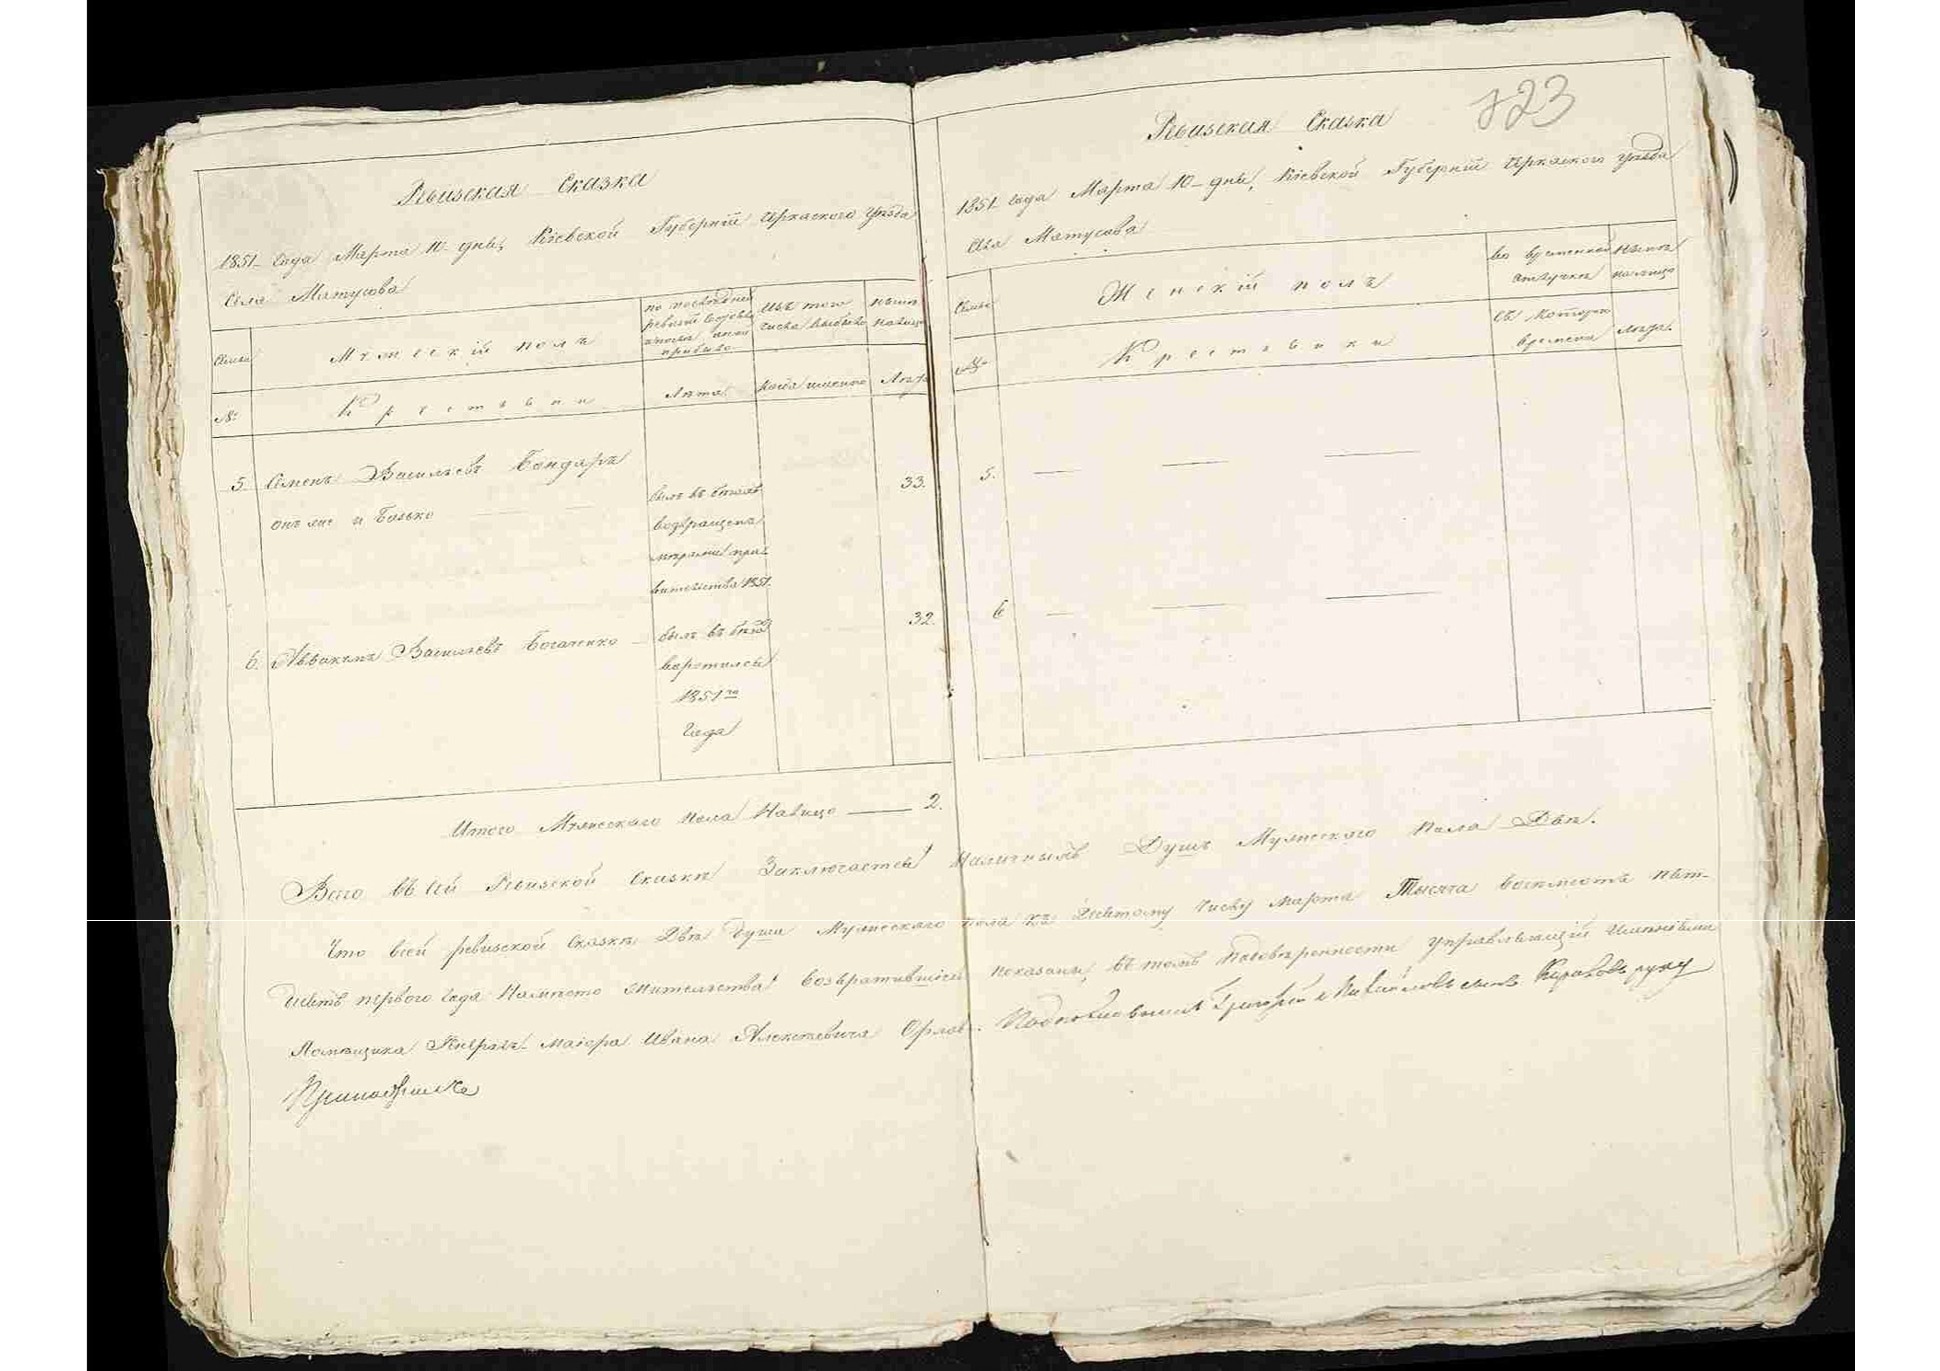 Ревизская Сказка
1851 года Марта 10 дня, Кіевской Губерніи Черкаского уезда
Села Матусова
Семьи
Мужескій полъ
по последней ревизіи состояло и после оной прибыло
Изъ того числа выбыло
ныне на лицо
№
Крестьяни
Лета
Когда именно
Лета
5. Семенъ Васильевъ Бондарь 33.
онъ же и Балько
былъ въ бегахъ
возвращенъ
1851.
6. Аввакумъ Васильевъ Богаченко 32.
былъ въ бегахъ
воротился
1851го
Года
Итого Мужескаго пола Налицо 2.
723
Ревизская Сказка
1851 года Марта 10 дня, Кіевской Губерніи Черкаского уезда
Села Матусова
Семьи
Женскій полъ
во временной отлучке
Ныне на лицо
№
Крестьянки
съ котораго времени
лета.
5.
6
Всего въ сей Ревизской сказке Заключается Наличныхъ Душъ Мужескаго пола Две.
Что в сей ревизской сказке Две души Мужескаго пола къ Десятому числу Марта Тысяча восемсотъ пят-
десятъ первого года На место жительства возвратившіеся показаны, въ томъ по доверенности управляющій Именіями
Помещика Генералъ-Маіора Ивана Алексеевича Орлова. Подписавшись Григорій Михайловъ сынъ руку
Приложилъ